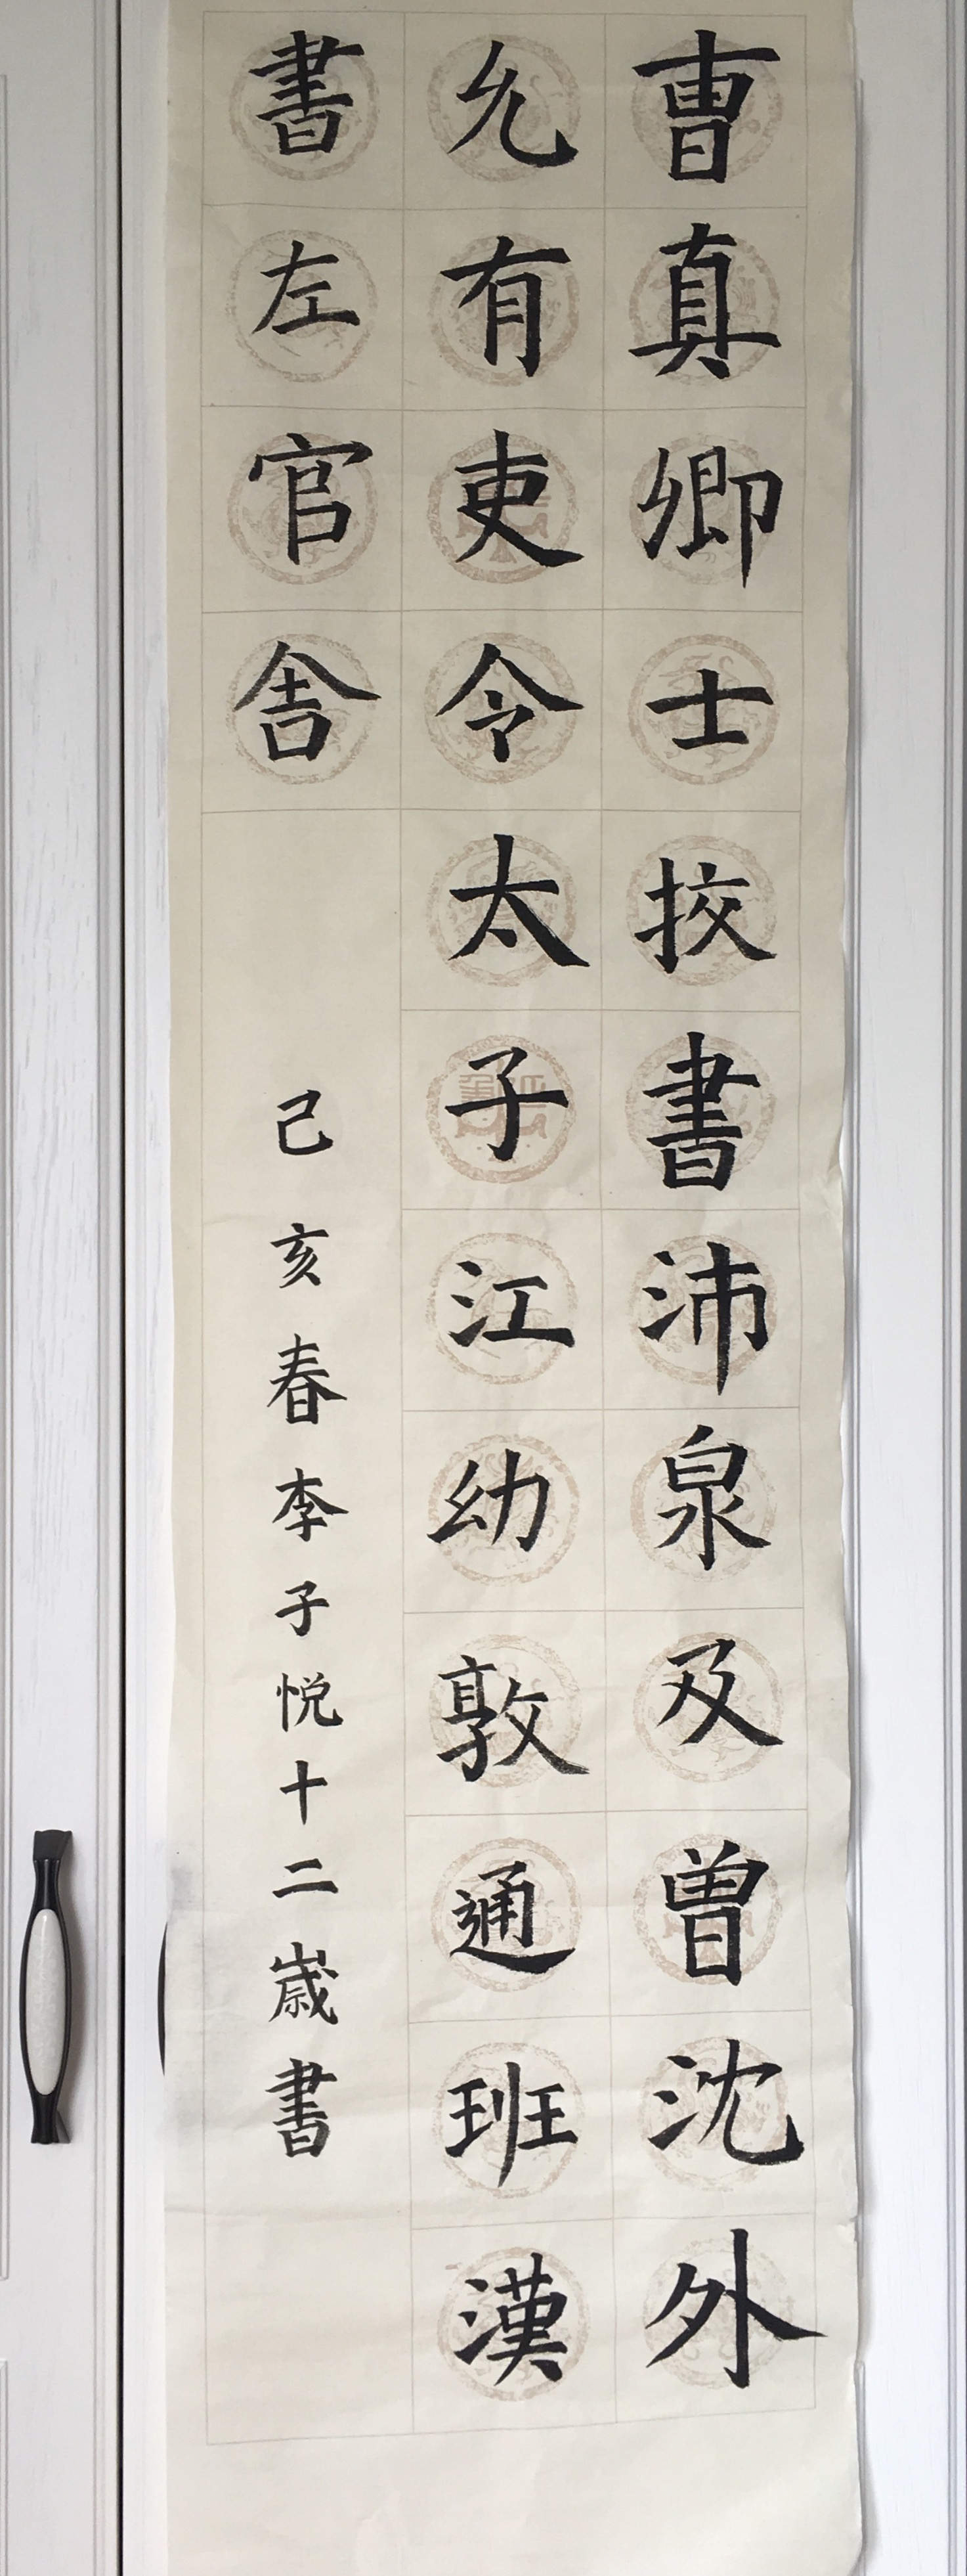 曺真卿士挍書沛泉及曽沈外
允有吏令太子江幼敦通班漢
書左官舎
己亥春李子悦十二歳書